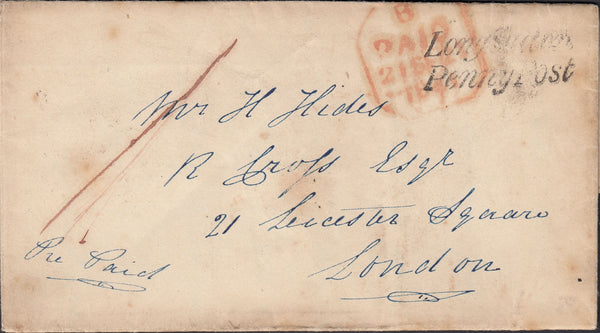 B
PAID
21 S
Long Sutton
Penny Post
Mr H Hides
R Cross Esqr
21 Leicester Square
London
Pre Paid